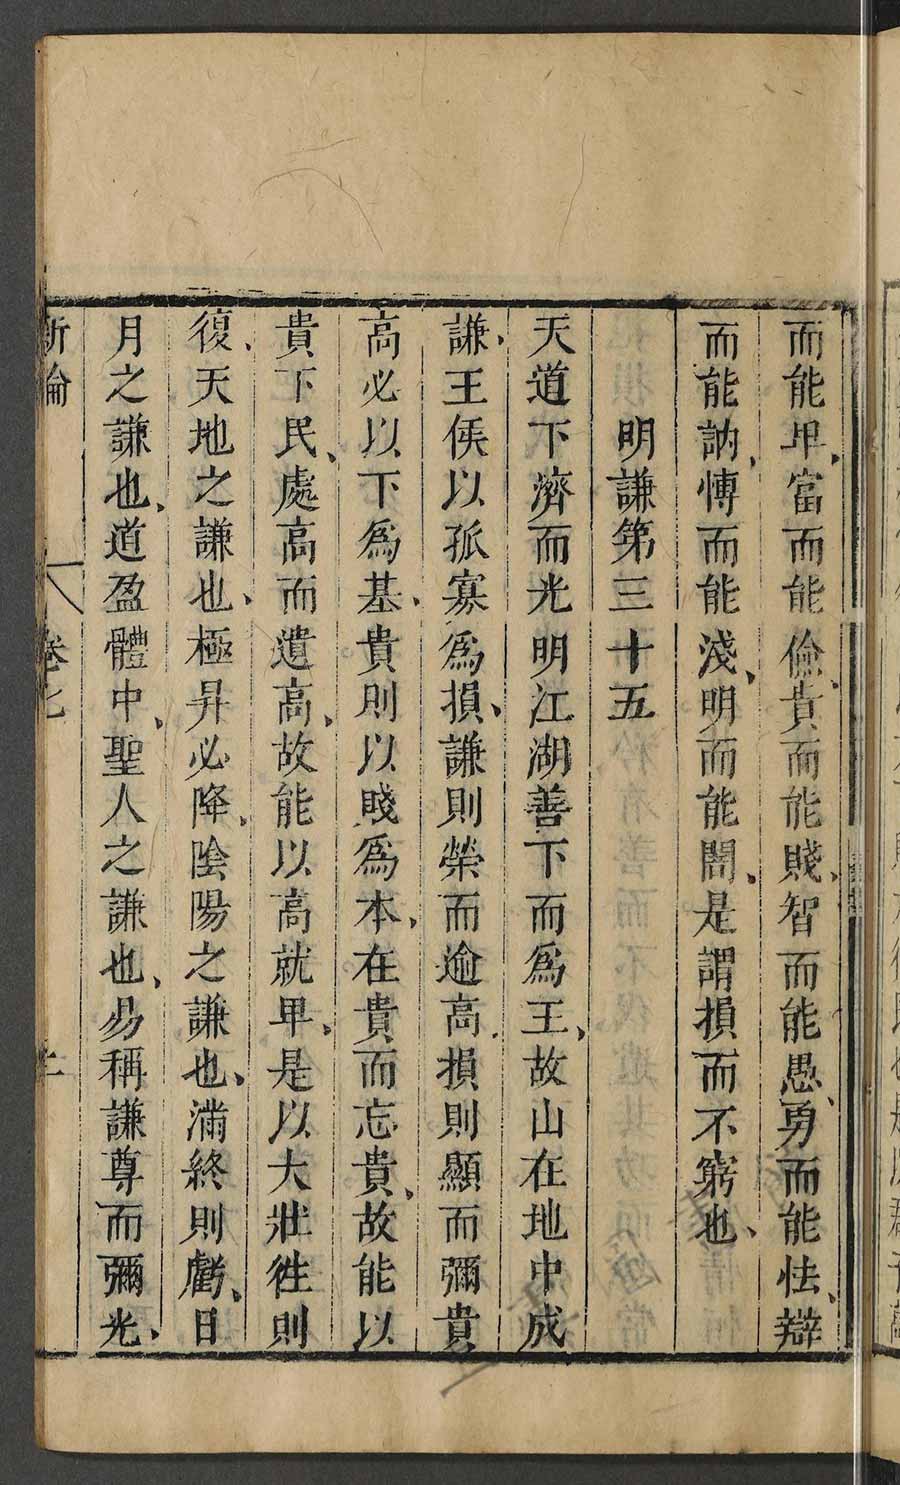 而能卑、富而能儉、貴而能賤、智而能愚、勇而能怯、辯
而能訥、博而能淺、明而能闇、是謂損而不窮也、
明謙第三十五
天道下濟而光明江湖善下而爲王、故山在地中成
謙、王侯以孤寡爲損、謙則榮而逾高、損則顯而彌貴
高必以下爲基、貴則以賤爲本、在貴而忘貴、故能以
貴下民、處高而遺高、故能以高就卑、是以大壯往則
復、天地之謙也、極昇必降、陰陽之謙也、滿終則虧、日
月之謙也、道盈體中、聖人之謙也、易稱謙尊而彌光、
新論 卷七